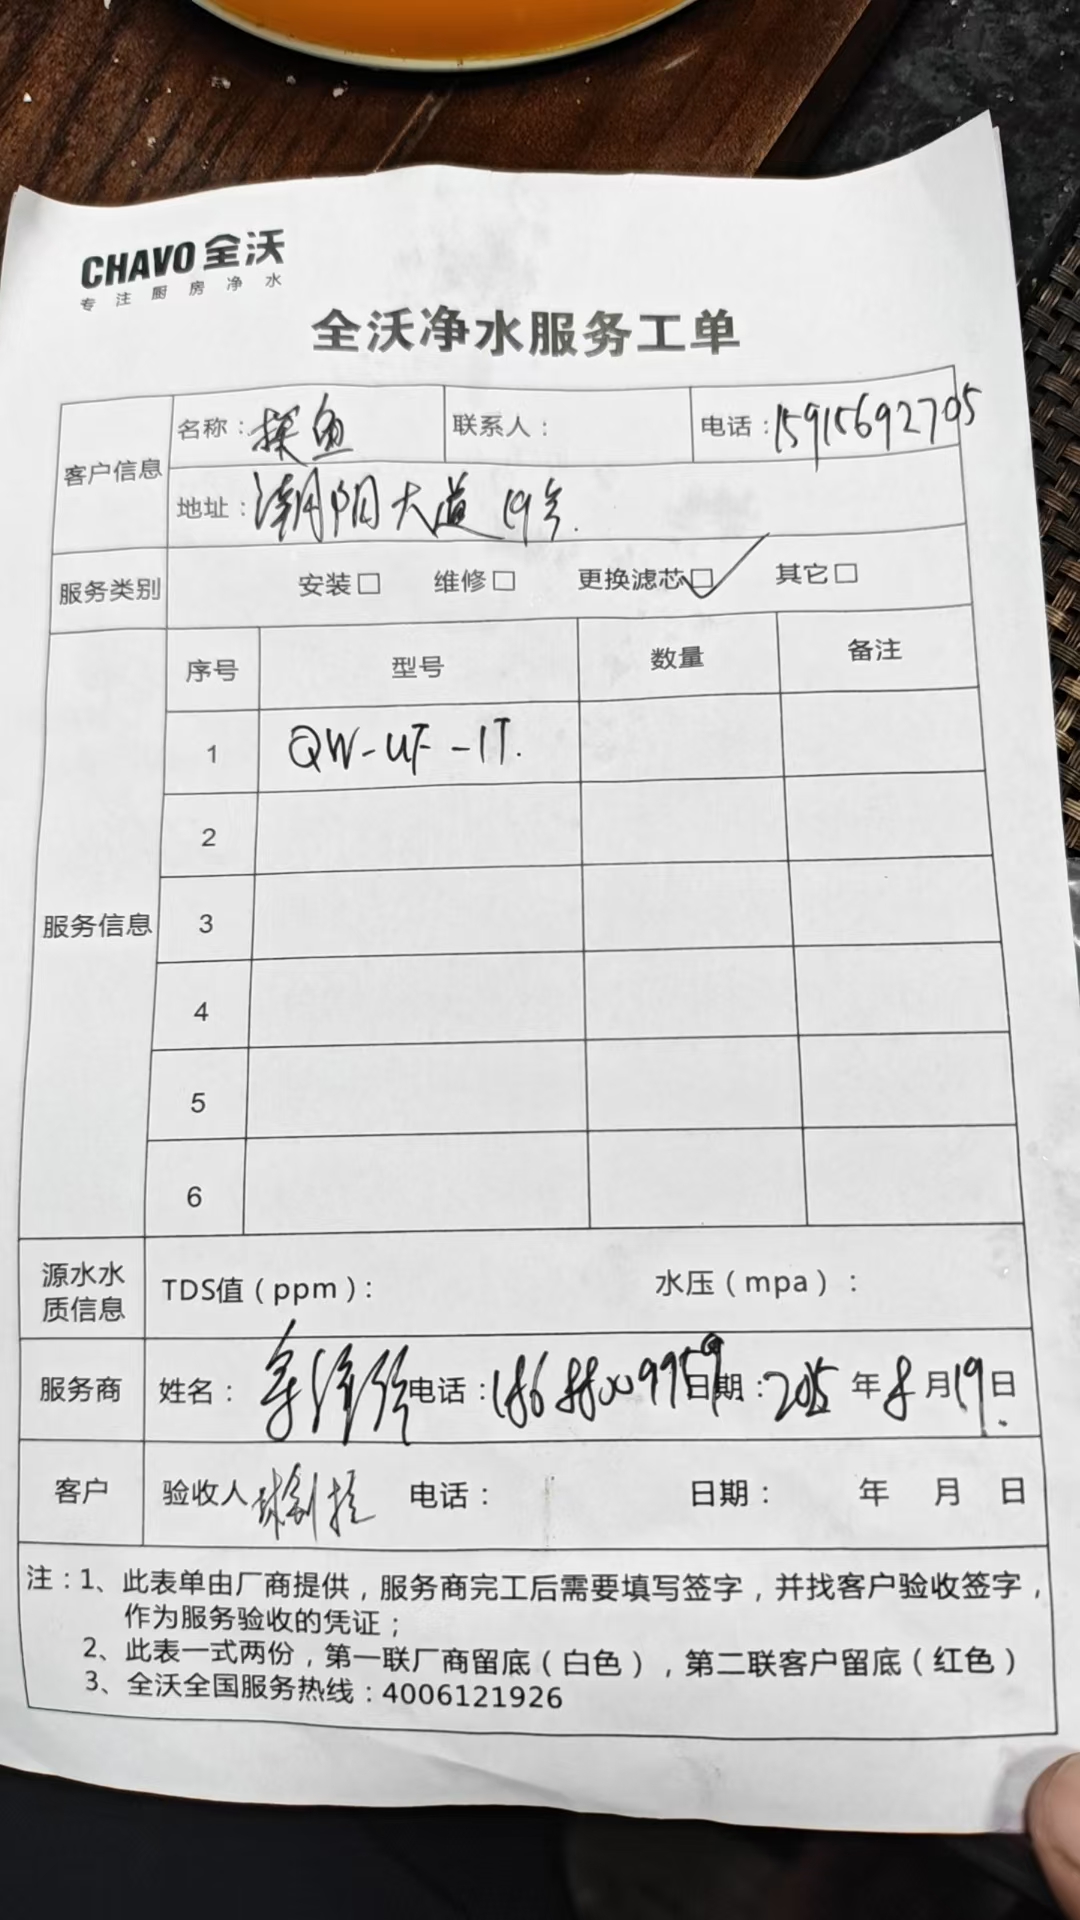 CHAVO 全沃
专注厨房净水
全沃净水服务工单
客户信息 名称：探鱼 联系人： 电话：15915692705
地址：潮阳大道19号.
服务类别 安装□ 维修□ 更换滤芯□✓ 其它□
服务信息 序号 型号 数量 备注
1 QW-UF-1T.
2
3
4
5
6
源水水质信息 TDS值（ppm）： 水压（mpa）：
服务商 姓名： 电话：18688009959 日期：2025年8月19日
客户 验收人 电话： 日期： 年 月 日
注：1、此表单由厂商提供，服务商完工后需要填写签字，并找客户验收签字，
作为服务验收的凭证；
2、此表一式两份，第一联厂商留底（白色），第二联客户留底（红色）
3、全沃全国服务热线：4006121926